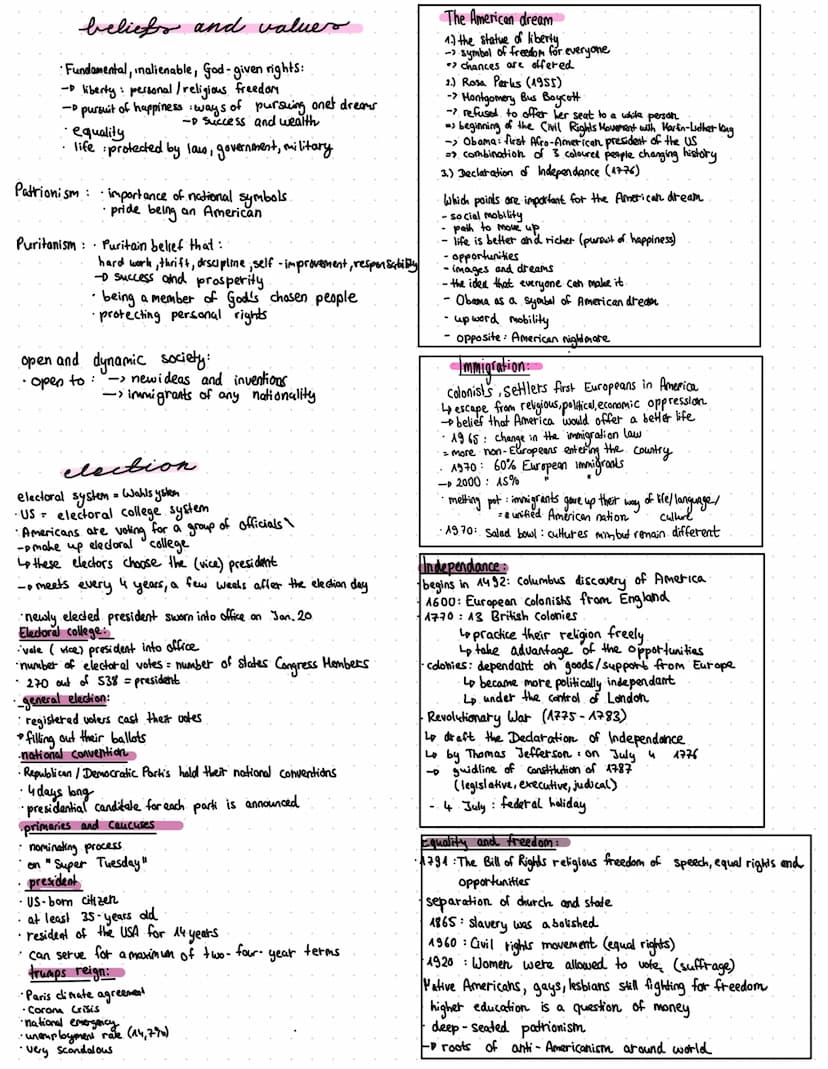 beliefs and values
· Fundamental, inalienable, God-given rights:
→ liberty: personal/religious freedom
→ pursuit of happiness: ways of pursuing one's dreams
→ success and wealth
· equality
· life: protected by law, government, military
Patrionism: · importance of national symbols
· pride being an American
Puritanism: · Puritain belief that:
hard work, thrift, discipline, self-improvement, responsability
→ success and prosperity
· being a member of God's chosen people
· protecting personal rights
open and dynamic society:
· open to: → new ideas and inventions
→ immigrants of any nationality
election
electoral system = Wahlsystem
· US = electoral college system
· Americans are voting for a group of officials\
→ make up electoral college
↳ these electors choose the (vice) president
→ meets every 4 years, a few weeks after the election day
· newly elected president sworn into office on Jan. 20
Electoral college:
· vote (vice) president into office
· number of electoral votes = number of states Congress Members
· 270 out of 538 = president
· general election:
· registered voters cast their votes
· filling out their ballots
national convention
· Republican / Democratic Partis hold their national conventions
· 4 days long
· presidential canditate for each parti is announced
primaries and caucuses
· nominating process
· on "Super Tuesday"
· president
· US-born citizen
· at least 35-years old
· resident of the USA for 14 years
· can serve for a maximum of two-four-year terms
trumps reign:
· Paris climate agreement
· Corona Crisis
· national emergency
· unemployment rate (14,7%)
· very scandalous
The American dream
1.) the statue of liberty
-> symbol of freedom for everyone
=> chances are offered
2.) Rosa Parks (1955)
-> Montgomery Bus Boycott
-> refused to offer her seat to a white person
=> beginning of the Civil Rights Movement with Martin-Luther King
-> Obama: first Afro-American president of the US
=> combination of 3 coloured people changing history
3.) Declaration of Independance (1776)
Which points are important for the American dream
- social mobility
- path to move up
- life is better and richer (pursuit of happiness)
- opportunities
- images and dreams
- the idea that everyone can make it
- Obama as a symbol of American dream
- upword mobility
- opposite: American nightmare
Immigration:
colonists, settlers first Europeans in America
↳ escape from religious, political, economic oppression
→ belief that America would offer a better life
· 1965: change in the immigration law
= more non-Europeans entering the country
· 1970: 60% European immigrants
→ 2000: 15% " "
· melting pot: immigrants gave up their way of life/language/
= a unified American nation culture
· 1970: Salad bowl: cultures mix but remain different
Independance:
begins in 1492: columbus discovery of America
1600: European colonists from England
1770: 13 British Colonies
↳ practice their religion freely
↳ take advantage of the opportunities
· colonies: dependant on goods/support from Europe
↳ became more politically independant
↳ under the control of London
· Revolutionary War (1775-1783)
↳ draft the Declaration of Independance
↳ by Thomas Jefferson: on July 4 1776
→ guidline of constitution of 1787
(legislative, executive, judical)
- 4 July: federal holiday
Equality and freedom:
· 1791: The Bill of Rights religious freedom of speech, equal rights and
opportunities
separation of church and state
1865: slavery was abolished
1960: Civil rights movement (equal rights)
1920: Women were allowed to vote, (suffrage)
Native Americans, gays, lesbians still fighting for freedom
higher education is a question of money
· deep-seated patrionism
→ roots of anti-Americanism around world